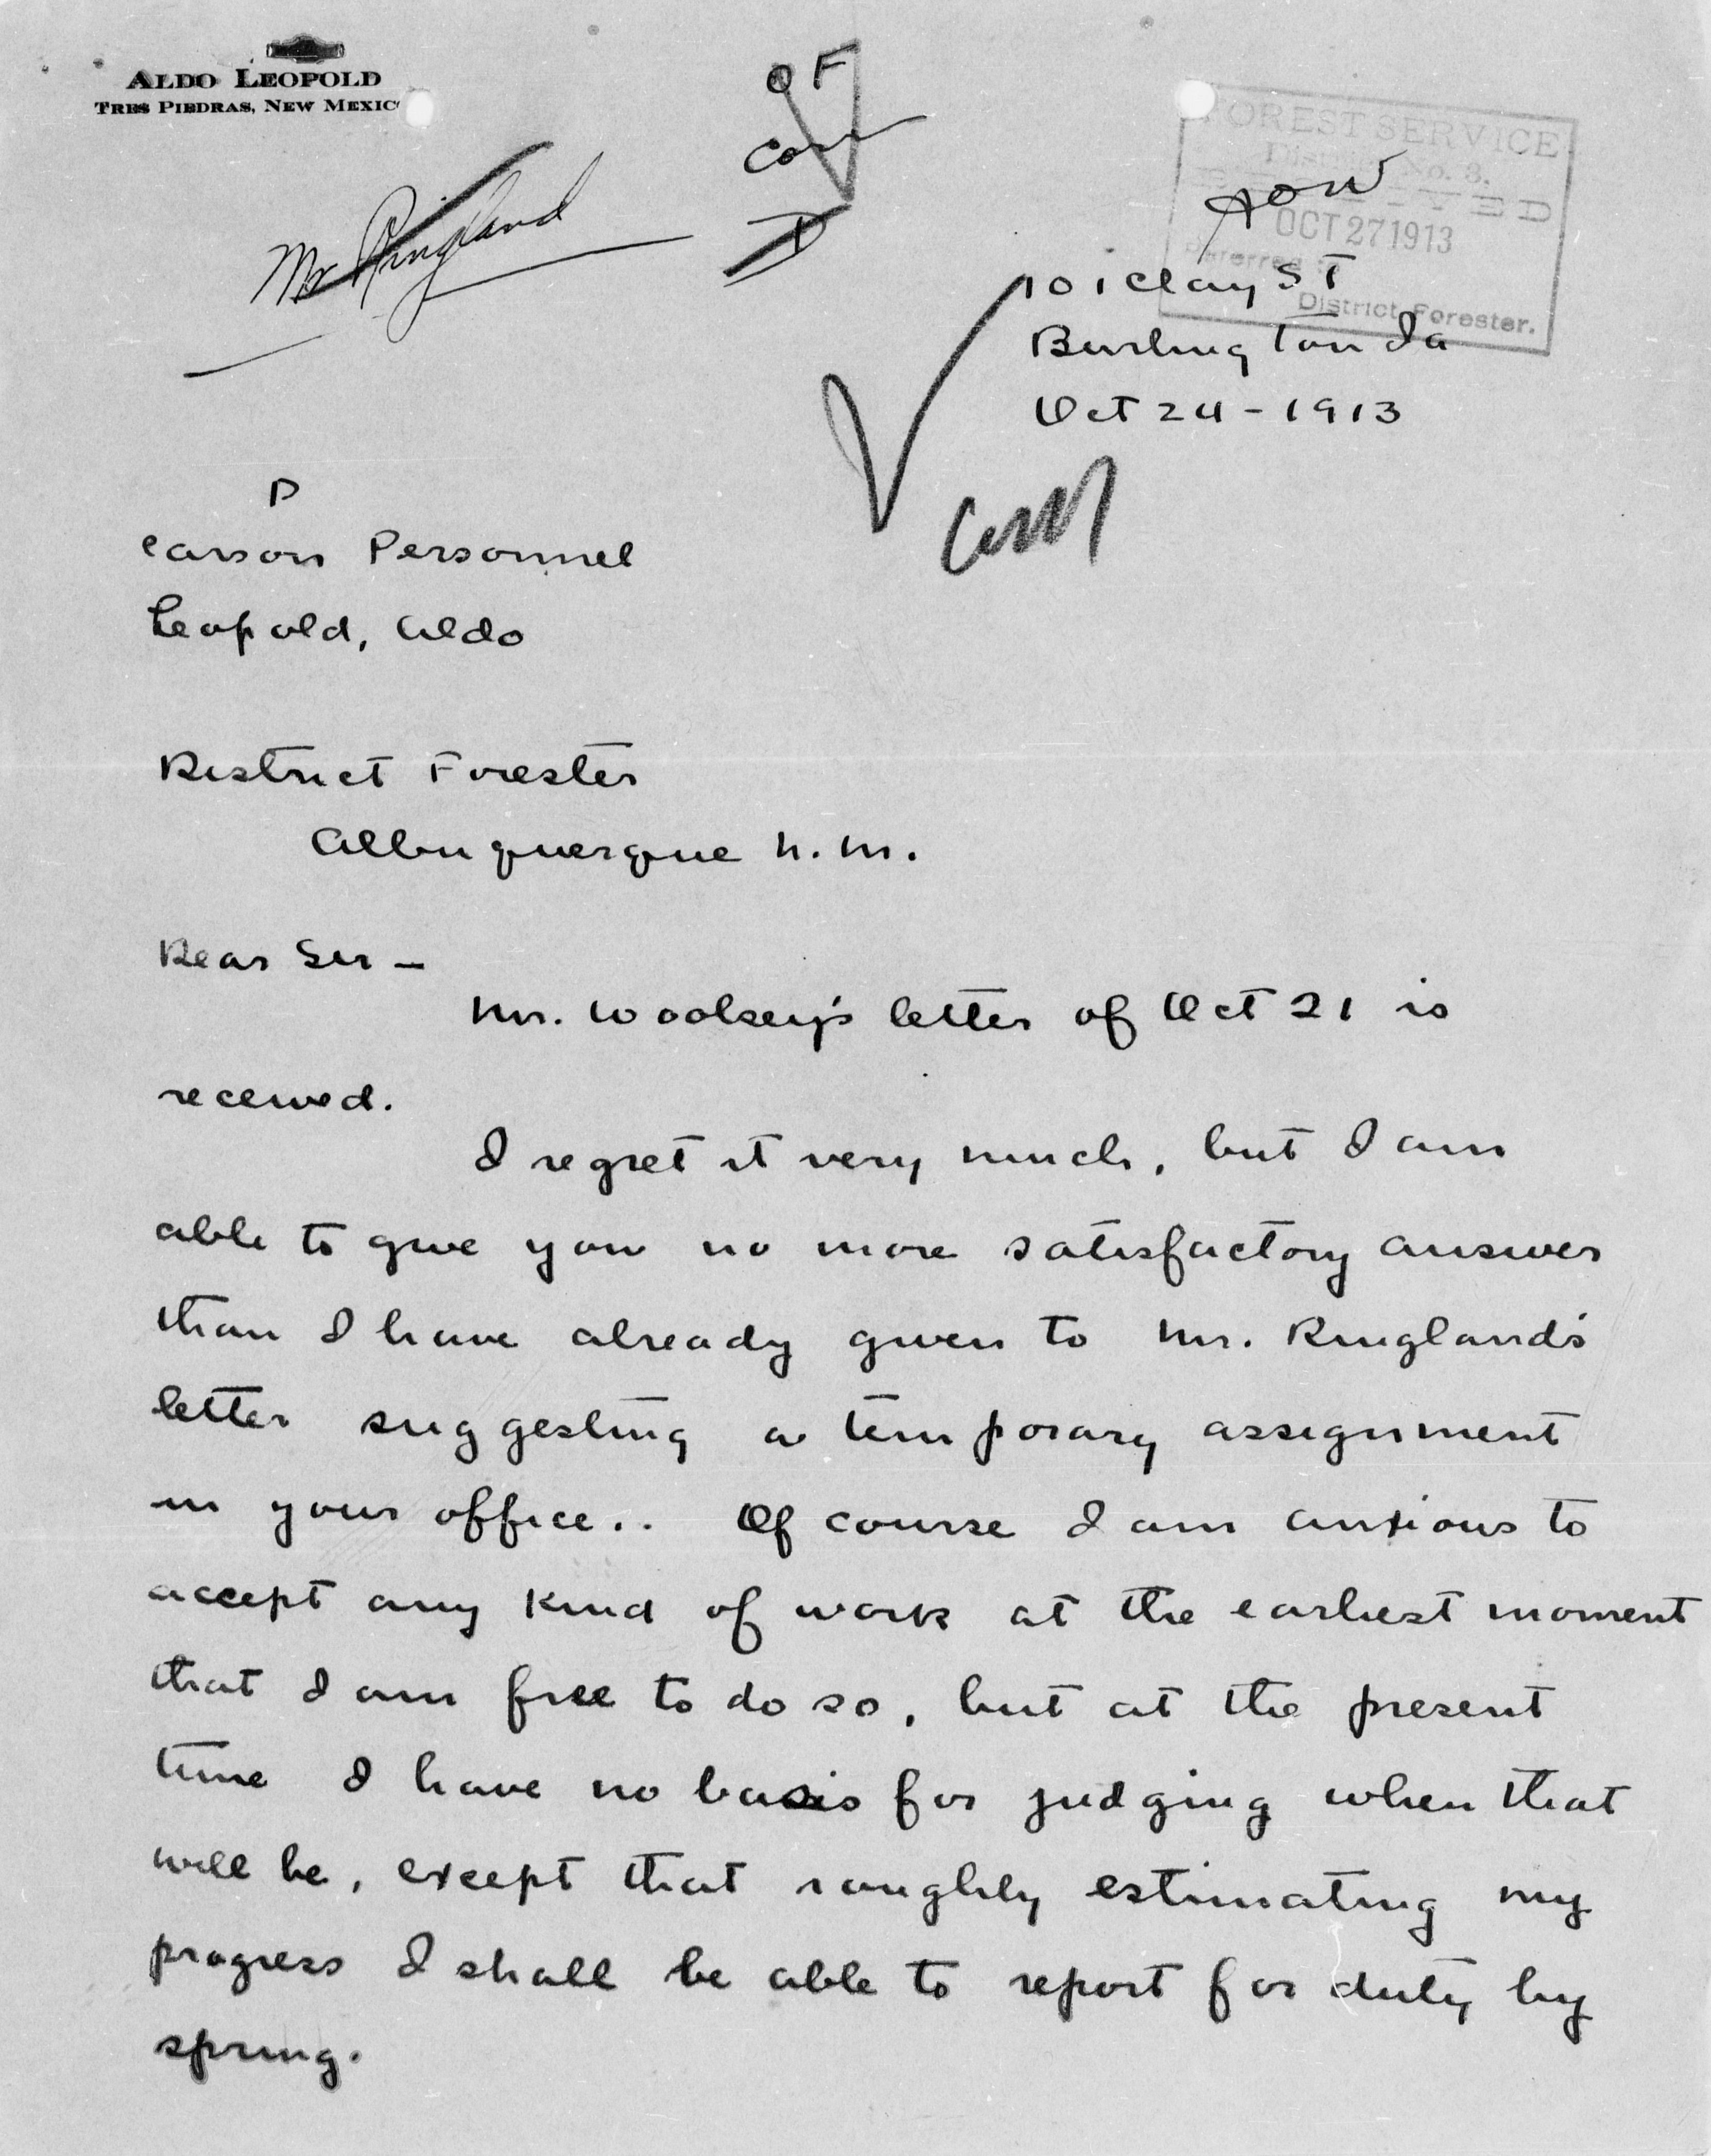 ALDO LEOPOLD
TRES PIEDRAS, NEW MEXIC
OF
Mr Ringland
FOREST SERVICE
District No. 3.
RECEIVED
OCT 27 1913
Referred to
District Forester.
101 Clay ST
Burlington Ia
Oct 24 - 1913
P
Carson Personnel
Leopold, Aldo
District Forester
Albuquerque N.M.
Dear Sir -
Mr. Woolsey's letter of Oct 21 is
received.
I regret it very much, but I am
able to give you no more satisfactory answer
than I have already given to Mr. Ringland's
letter suggesting a temporary assignment
in your office.. Of course I am anxious to
accept any kind of work at the earliest moment
that I am free to do so, but at the present
time I have no basis for judging when that
will be, except that roughly estimating my
progress I shall be able to report for duty by
spring.